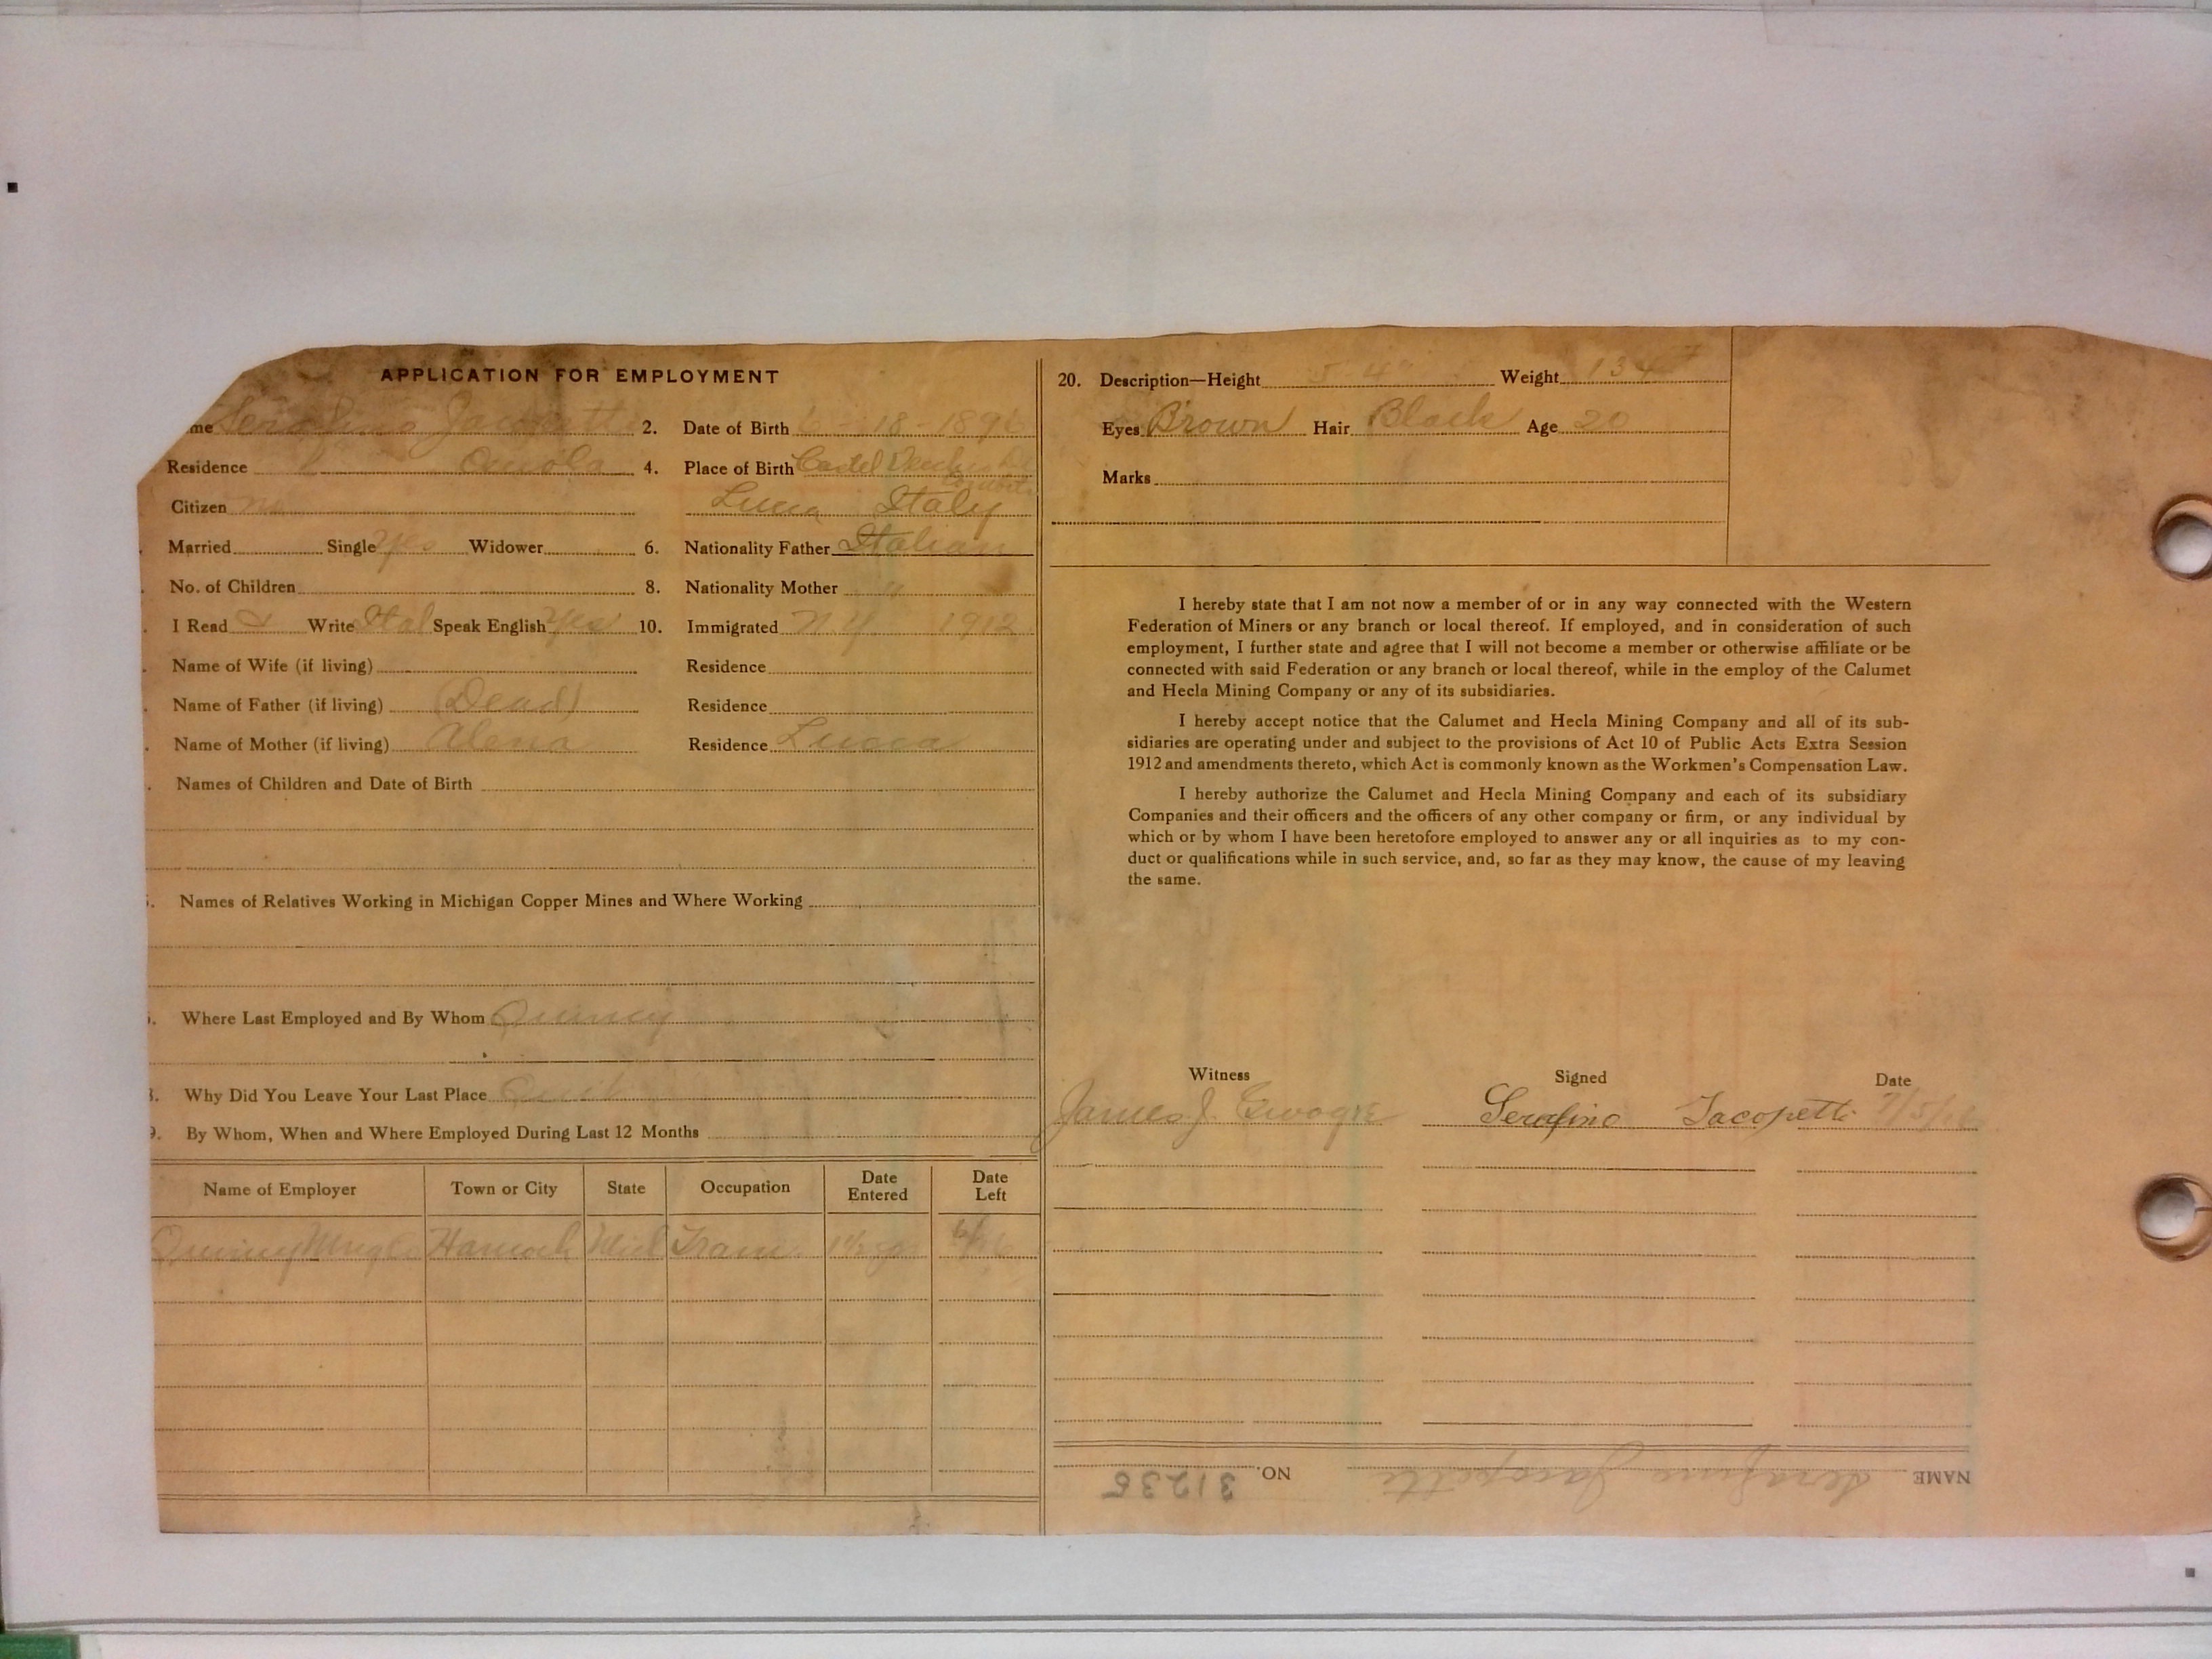 APPLICATION FOR EMPLOYMENT
me Serafino Jacopetti 2. Date of Birth 6-18-1896
Residence Osceola 4. Place of Birth Castel
Citizen No Lucca Italy
Married Single Yes Widower 6. Nationality Father Italian
No. of Children 8. Nationality Mother "
I Read Write Ital Speak English Yes 10. Immigrated N.Y. 1912
Name of Wife (if living) Residence
Name of Father (if living) (Dead) Residence
Name of Mother (if living) Alena Residence Lucca
Names of Children and Date of Birth
Names of Relatives Working in Michigan Copper Mines and Where Working
Where Last Employed and By Whom Quincy
Why Did You Leave Your Last Place Quit
9. By Whom, When and Where Employed During Last 12 Months
Name of Employer Town or City State Occupation Date Entered Date Left
Quincy Hancock Mich Tram 1½ yr
20. Description—Height 5-4" Weight 134#
Eyes Brown Hair Black Age 20
Marks
I hereby state that I am not now a member of or in any way connected with the Western
Federation of Miners or any branch or local thereof. If employed, and in consideration of such
employment, I further state and agree that I will not become a member or otherwise affiliate or be
connected with said Federation or any branch or local thereof, while in the employ of the Calumet
and Hecla Mining Company or any of its subsidiaries.
I hereby accept notice that the Calumet and Hecla Mining Company and all of its sub-
sidiaries are operating under and subject to the provisions of Act 10 of Public Acts Extra Session
1912 and amendments thereto, which Act is commonly known as the Workmen's Compensation Law.
I hereby authorize the Calumet and Hecla Mining Company and each of its subsidiary
Companies and their officers and the officers of any other company or firm, or any individual by
which or by whom I have been heretofore employed to answer any or all inquiries as to my con-
duct or qualifications while in such service, and, so far as they may know, the cause of my leaving
the same.
Witness Signed Date
James J. Serafino Jacopetti 7/5/16
NAME Serafino Jacopetti NO. 31238